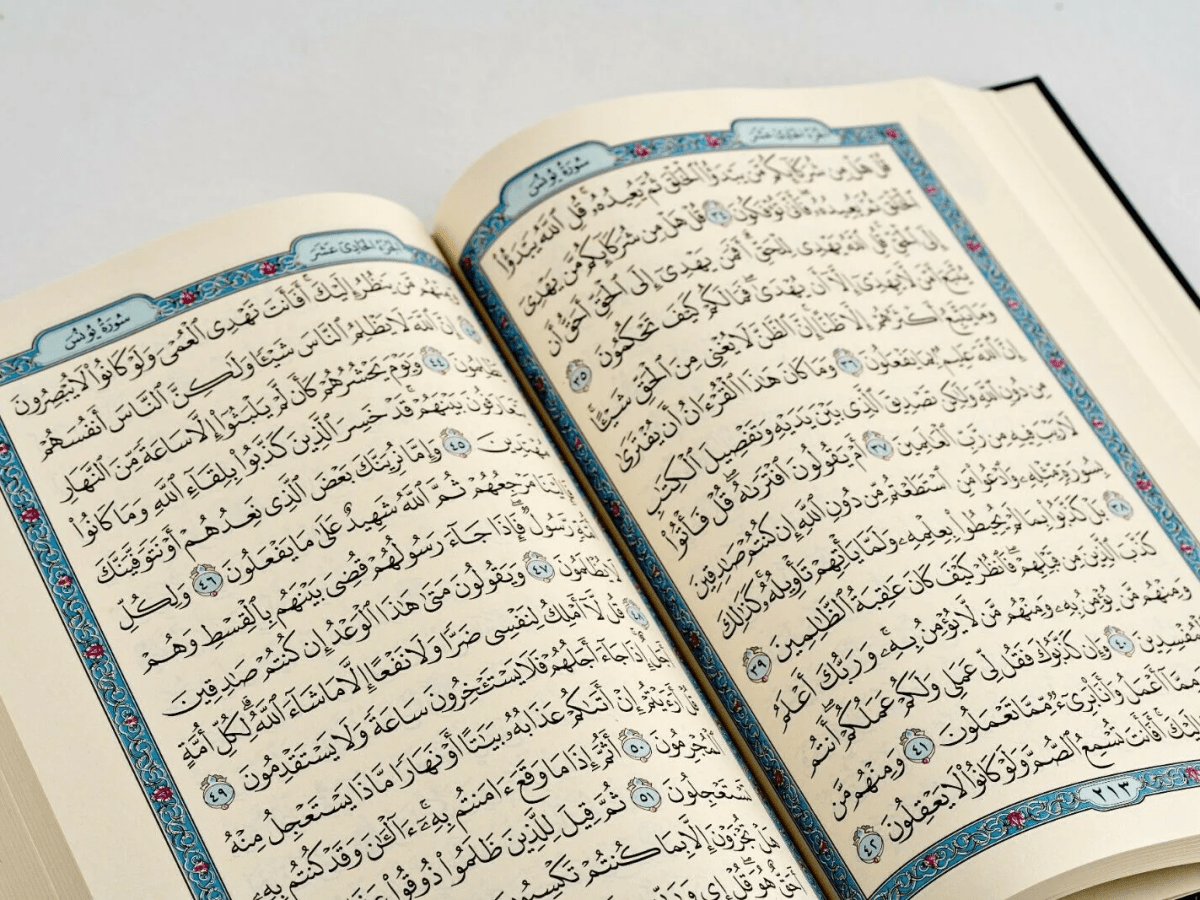 الجزء الحادي عشر
سورة يونس
قُلْ هَلْ مِن شُرَكَآئِكُم مَّن يَبْدَؤُا۟ ٱلْخَلْقَ ثُمَّ يُعِيدُهُۥ ۚ قُلِ ٱللَّهُ يَبْدَؤُا۟
ٱلْخَلْقَ ثُمَّ يُعِيدُهُۥ ۖ فَأَنَّىٰ تُؤْفَكُونَ ٣٤ قُلْ هَلْ مِن شُرَكَآئِكُم مَّن يَهْدِىٓ
إِلَى ٱلْحَقِّ ۚ قُلِ ٱللَّهُ يَهْدِى لِلْحَقِّ ۗ أَفَمَن يَهْدِىٓ إِلَى ٱلْحَقِّ أَحَقُّ أَن
يُتَّبَعَ أَمَّن لَّا يَهِدِّىٓ إِلَّآ أَن يُهْدَىٰ ۖ فَمَا لَكُمْ كَيْفَ تَحْكُمُونَ ٣٥
وَمَا يَتَّبِعُ أَكْثَرُهُمْ إِلَّا ظَنًّا ۚ إِنَّ ٱلظَّنَّ لَا يُغْنِى مِنَ ٱلْحَقِّ شَيْـًٔا ۚ
إِنَّ ٱللَّهَ عَلِيمٌۢ بِمَا يَفْعَلُونَ ٣٦ وَمَا كَانَ هَٰذَا ٱلْقُرْءَانُ أَن يُفْتَرَىٰ
مِن دُونِ ٱللَّهِ وَلَٰكِن تَصْدِيقَ ٱلَّذِى بَيْنَ يَدَيْهِ وَتَفْصِيلَ ٱلْكِتَٰبِ
لَا رَيْبَ فِيهِ مِن رَّبِّ ٱلْعَٰلَمِينَ ٣٧ أَمْ يَقُولُونَ ٱفْتَرَىٰهُ ۖ قُلْ فَأْتُوا۟
بِسُورَةٍ مِّثْلِهِۦ وَٱدْعُوا۟ مَنِ ٱسْتَطَعْتُم مِّن دُونِ ٱللَّهِ إِن كُنتُمْ صَٰدِقِينَ
٣٨ بَلْ كَذَّبُوا۟ بِمَا لَمْ يُحِيطُوا۟ بِعِلْمِهِۦ وَلَمَّا يَأْتِهِمْ تَأْوِيلُهُۥ ۚ كَذَٰلِكَ
كَذَّبَ ٱلَّذِينَ مِن قَبْلِهِمْ ۖ فَٱنظُرْ كَيْفَ كَانَ عَٰقِبَةُ ٱلظَّٰلِمِينَ ٣٩
وَمِنْهُم مَّن يُؤْمِنُ بِهِۦ وَمِنْهُم مَّن لَّا يُؤْمِنُ بِهِۦ ۚ وَرَبُّكَ أَعْلَمُ
بِٱلْمُفْسِدِينَ ٤٠ وَإِن كَذَّبُوكَ فَقُل لِّى عَمَلِى وَلَكُمْ عَمَلُكُمْ ۖ أَنتُم
بَرِيٓـُٔونَ مِمَّآ أَعْمَلُ وَأَنَا۠ بَرِىٓءٌ مِّمَّا تَعْمَلُونَ ٤١ وَمِنْهُم مَّن
يَسْتَمِعُونَ إِلَيْكَ ۚ أَفَأَنتَ تُسْمِعُ ٱلصُّمَّ وَلَوْ كَانُوا۟ لَا يَعْقِلُونَ ٤٢
٢١٣
الجزء الحادي عشر
سورة يونس
وَمِنْهُم مَّن يَنظُرُ إِلَيْكَ ۚ أَفَأَنتَ تَهْدِى ٱلْعُمْىَ وَلَوْ كَانُوا۟ لَا يُبْصِرُونَ
إِنَّ ٱللَّهَ لَا يَظْلِمُ ٱلنَّاسَ شَيْـًٔا وَلَٰكِنَّ ٱلنَّاسَ أَنفُسَهُمْ
يَظْلِمُونَ ٤٤ وَيَوْمَ يَحْشُرُهُمْ كَأَن لَّمْ يَلْبَثُوٓا۟ إِلَّا سَاعَةً مِّنَ ٱلنَّهَارِ
يَتَعَارَفُونَ بَيْنَهُمْ ۚ قَدْ خَسِرَ ٱلَّذِينَ كَذَّبُوا۟ بِلِقَآءِ ٱللَّهِ وَمَا كَانُوا۟
مُهْتَدِينَ ٤٥ وَإِمَّا نُرِيَنَّكَ بَعْضَ ٱلَّذِى نَعِدُهُمْ أَوْ نَتَوَفَّيَنَّكَ
فَإِلَيْنَا مَرْجِعُهُمْ ثُمَّ ٱللَّهُ شَهِيدٌ عَلَىٰ مَا يَفْعَلُونَ ٤٦ وَلِكُلِّ
أُمَّةٍ رَّسُولٌ ۖ فَإِذَا جَآءَ رَسُولُهُمْ قُضِىَ بَيْنَهُم بِٱلْقِسْطِ وَهُمْ
لَا يُظْلَمُونَ ٤٧ وَيَقُولُونَ مَتَىٰ هَٰذَا ٱلْوَعْدُ إِن كُنتُمْ صَٰدِقِينَ
٤٨ قُل لَّآ أَمْلِكُ لِنَفْسِى ضَرًّا وَلَا نَفْعًا إِلَّا مَا شَآءَ ٱللَّهُ ۗ لِكُلِّ أُمَّةٍ
أَجَلٌ ۚ إِذَا جَآءَ أَجَلُهُمْ فَلَا يَسْتَـْٔخِرُونَ سَاعَةً ۖ وَلَا يَسْتَقْدِمُونَ ٤٩
قُلْ أَرَءَيْتُمْ إِنْ أَتَىٰكُمْ عَذَابُهُۥ بَيَٰتًا أَوْ نَهَارًا مَّاذَا يَسْتَعْجِلُ مِنْهُ
ٱلْمُجْرِمُونَ ٥٠ أَثُمَّ إِذَا مَا وَقَعَ ءَامَنتُم بِهِۦٓ ۚ ءَآلْـَٰٔنَ وَقَدْ كُنتُم بِهِۦ
تَسْتَعْجِلُونَ ٥١ ثُمَّ قِيلَ لِلَّذِينَ ظَلَمُوا۟ ذُوقُوا۟
هَلْ تُجْزَوْنَ إِلَّا بِمَا كُنتُمْ تَكْسِبُونَ
أَحَقٌّ هُوَ ۖ قُلْ إِى وَرَبِّىٓ